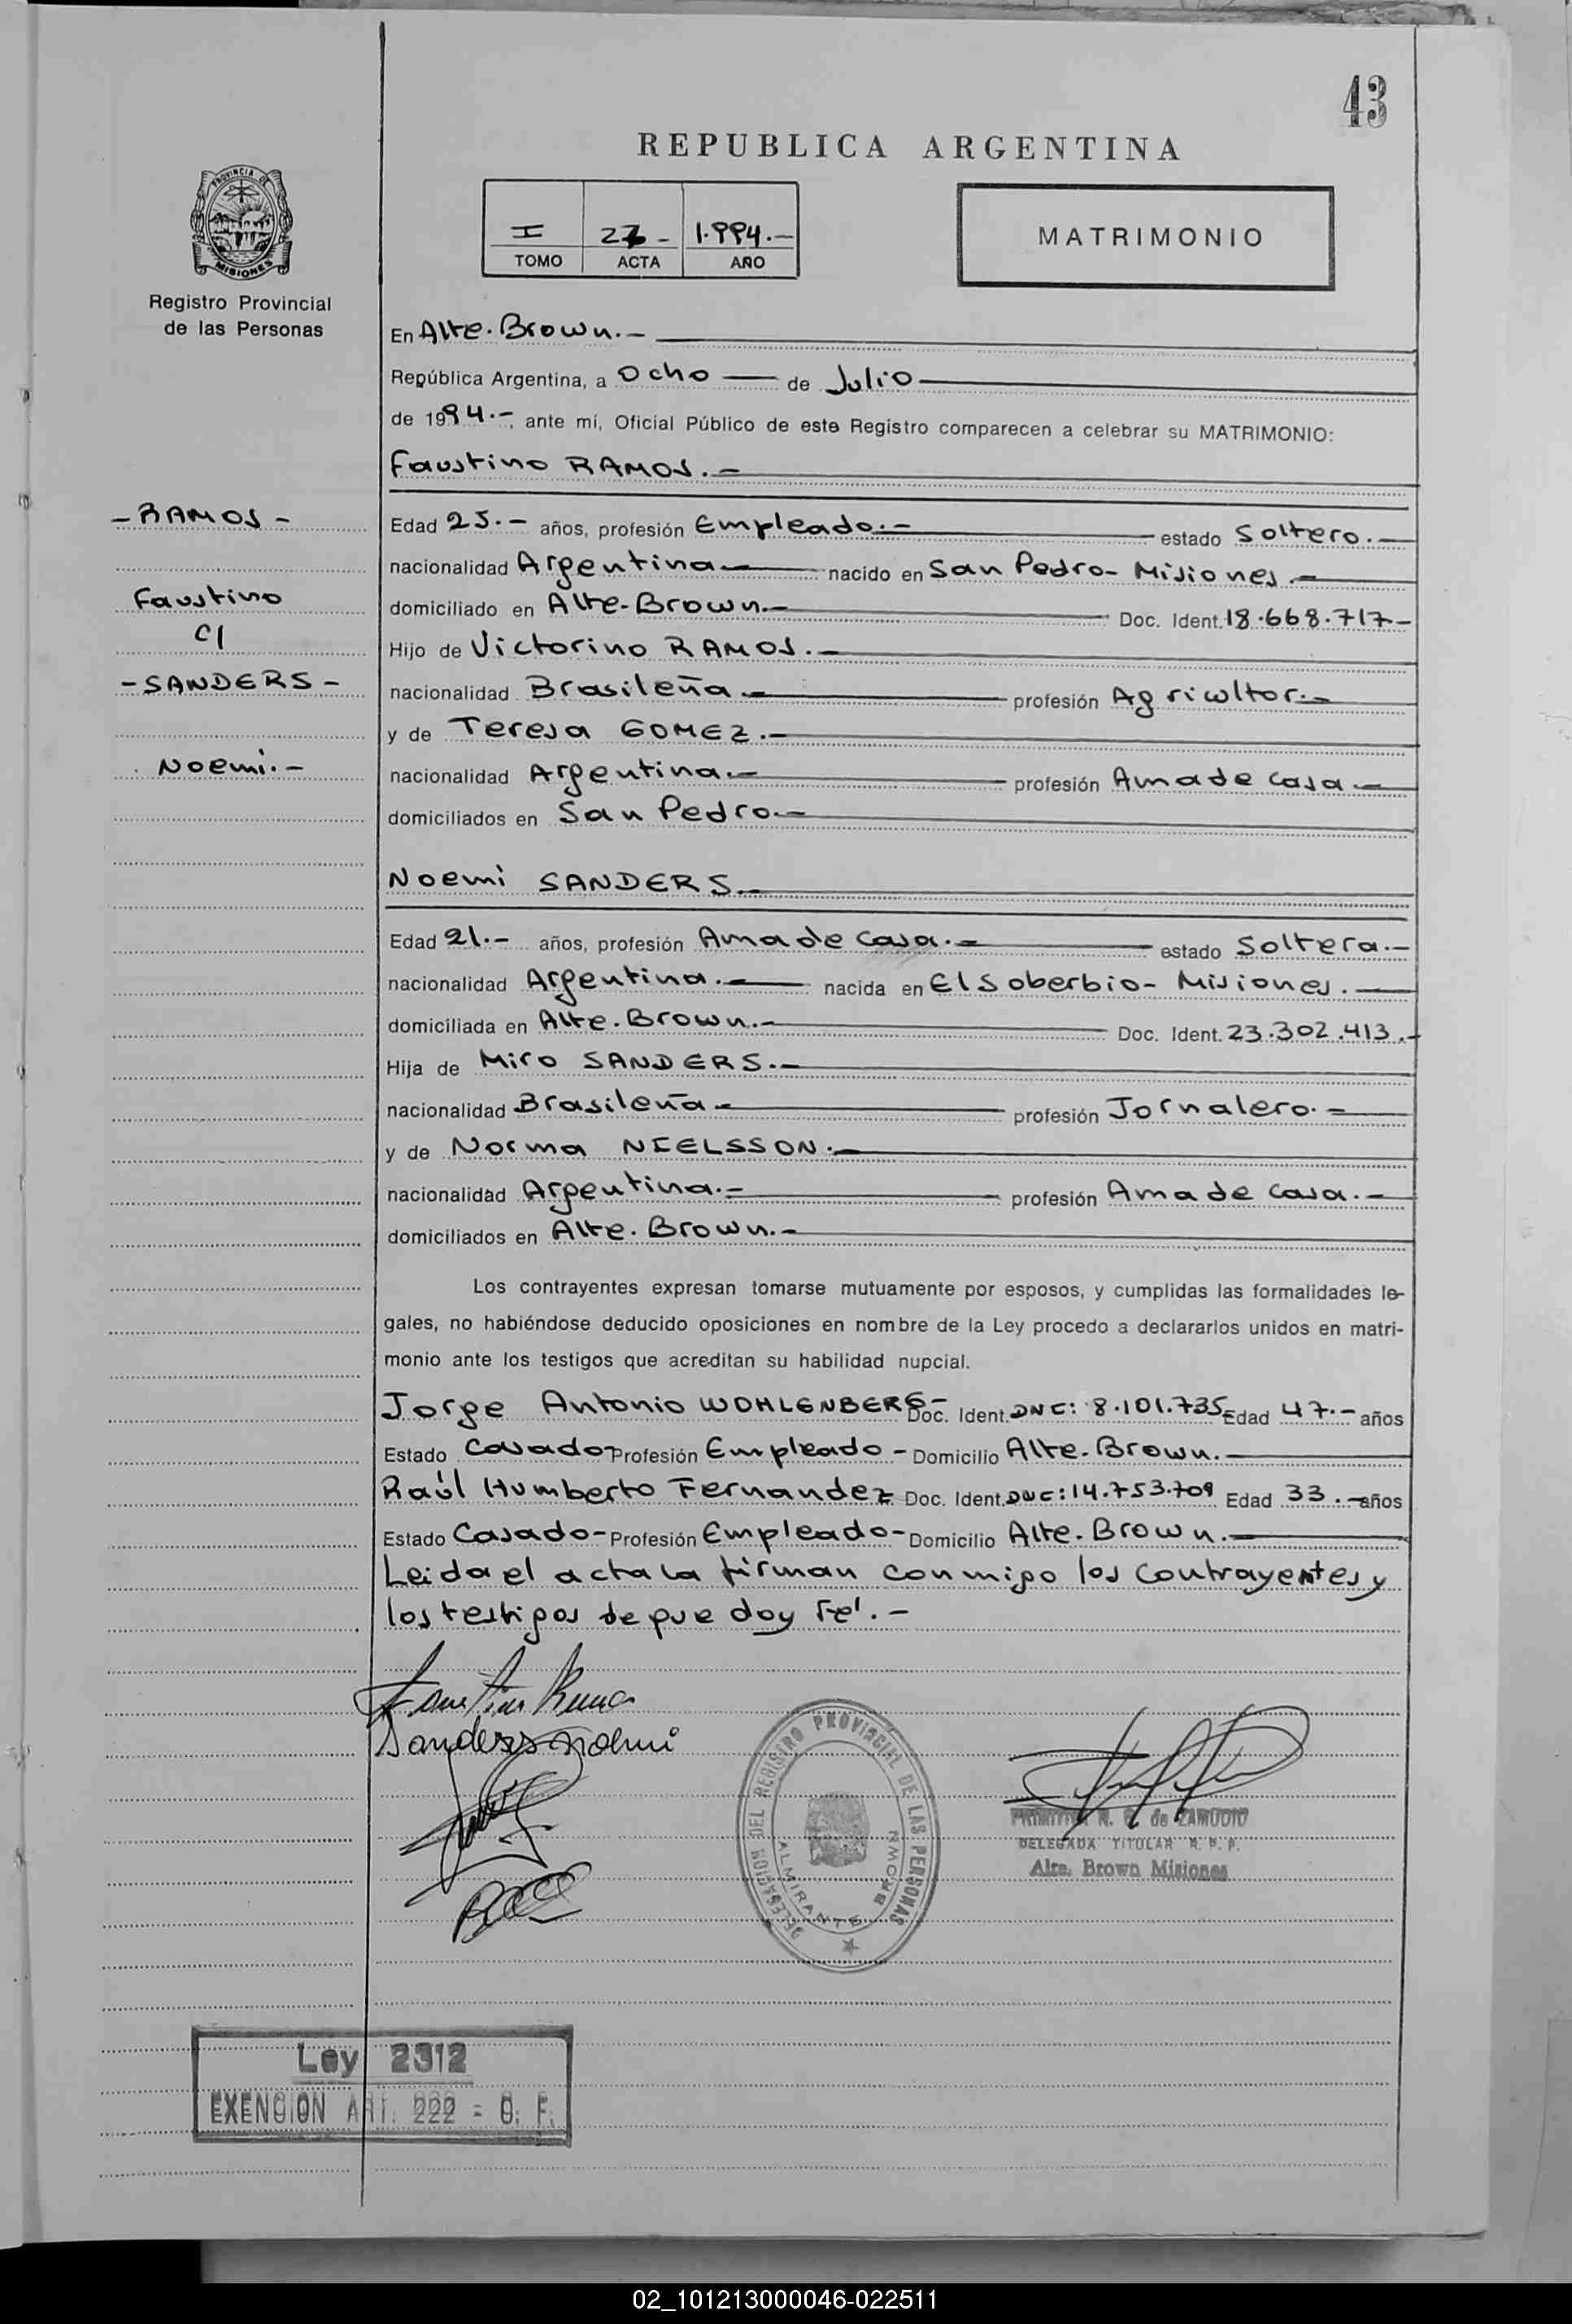 43
REPUBLICA ARGENTINA
PROVINCIA DE
MISIONES
Registro Provincial
de las Personas
I 27 - 1.994.-
TOMO ACTA AÑO
MATRIMONIO
En Alte. Brown.-
República Argentina, a Ocho de Julio
de 1994.-, ante mí, Oficial Público de este Registro comparecen a celebrar su MATRIMONIO:
Faustino RAMOS.-
- RAMOS -
Faustino
C/
- SANDERS -
Noemi.-
Edad 25.- años, profesión Empleado.- estado Soltero.-
nacionalidad Argentina nacido en San Pedro - Misiones.-
domiciliado en Alte. Brown.- Doc. Ident. 18.668.717-
Hijo de Victorino RAMOS.-
nacionalidad Brasileña profesión Agricultor.-
y de Teresa GOMEZ.-
nacionalidad Argentina.- profesión Ama de casa
domiciliados en San Pedro.-
Noemi SANDERS.-
Edad 21.- años, profesión Ama de casa.- estado Soltera.-
nacionalidad Argentina.- nacida en El Soberbio - Misiones.
domiciliada en Alte. Brown.- Doc. Ident. 23.302.413.-
Hija de Miro SANDERS.-
nacionalidad Brasileña profesión Jornalero.-
y de Norma NIELSSON.-
nacionalidad Argentina.- profesión Ama de casa.-
domiciliados en Alte. Brown.-
Los contrayentes expresan tomarse mutuamente por esposos, y cumplidas las formalidades le-
gales, no habiéndose deducido oposiciones en nombre de la Ley procedo a declararlos unidos en matri-
monio ante los testigos que acreditan su habilidad nupcial.
Jorge Antonio WOHLENBERG- Doc. Ident. DNI: 8.101.735 Edad 47.- años
Estado Casado- Profesión Empleado - Domicilio Alte. Brown.
Raúl Humberto Fernandez Doc. Ident. DNI: 14.753.709 Edad 33.- años
Estado Casado- Profesión Empleado- Domicilio Alte. Brown.
Leida el acta la firman conmigo los contrayentes y
los testigos de que doy Fe.-
Sanders Noemi
DELEGACION DEL REGISTRO PROVINCIAL DE LAS PERSONAS
ALMIRANTE BROWN
de ZAMUDIO
DELEGADA TITULAR R. P. P.
Alte. Brown Misiones
Ley 2312
EXENCION ART. 222 - C. F.
02_101213000046-022511